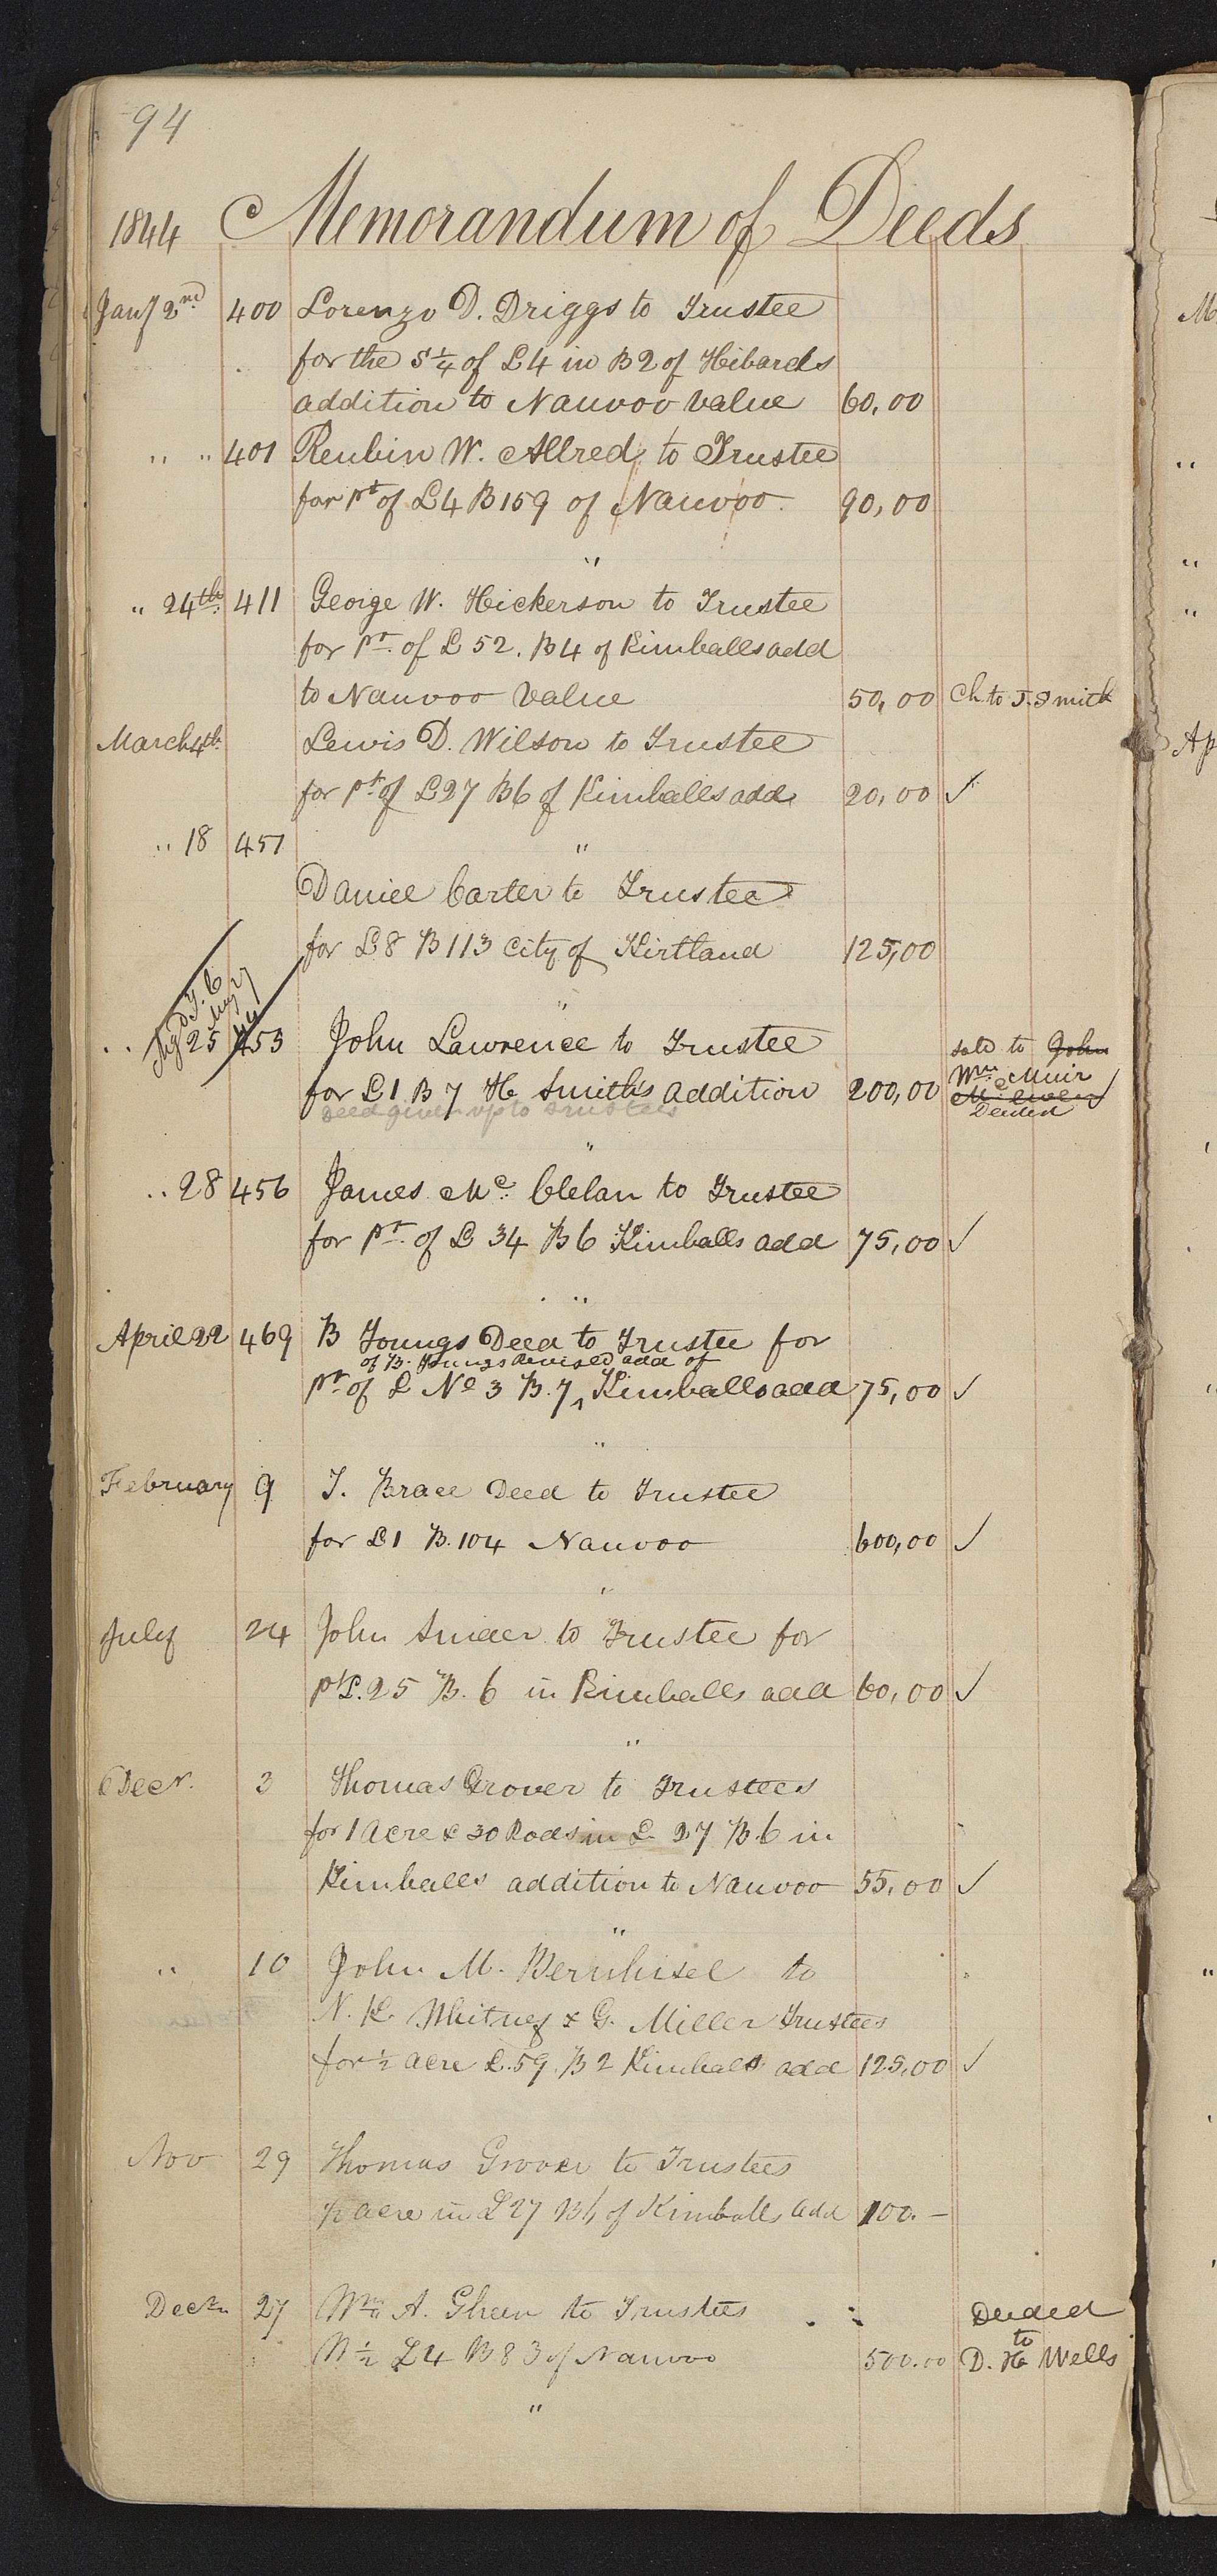 94
1844 Memorandum of Deeds
Jany 2nd 400 Lorenzo D. Driggs to Trustee
for the S ¼ of L 4 in B 2 of Hibards
addition to Nauvoo value 60,00
" " 401 Reubin W. Allred to Trustee
for pt of L 4 B 159 of Nauvoo. 90,00
"
" 24th 411 George W. Hickerson to Trustee
for pt. of L 52. B 4 of Kimballs add
to Nauvoo value 50,00 Ch. to J. Smith
March 4th Lewis D. Wilson to Trustee
for pt of L 27 B 6 of Kimballs add 20,00 ✓
" 18 451 "
Daniel Carter to Trustee
for L 8 B 113 City of Kirtland 125,00
"
" 25 453 John Lawrence to Trustee sold to John
Wm Muir
for L 1 B 7 H Smith's addition 200,00
deed given up to trustees Deeded
"
" 28 456 James Mc. Clelan to Trustee
for pt. of L 34 B 6 Kimballs add 75,00 ✓
"
April 22 469 B Youngs Deed to Trustee for
of B. Youngs Revised add of
pt of L No 3 B. 7 ^ Kimballs add 75,00 ✓
"
February 9 T. Brace Deed to Trustee
for L 1 B. 104 Nauvoo 600,00 ✓
"
July 24 John Snider to Trustee for
pt L. 25 B. 6 in Kimballs add 60,00 ✓
"
Decr. 3 Thomas Grover to Trustees
for 1 Acre & 30 Rods in L 27 B. 6 in
Kimballs addition to Nauvoo 55,00 ✓
"
" 10 John M. Bernhisel to
N. K. Whitney & G. Miller Trustees
for ½ acre L. 59 B 2 Kimballs add 125,00 ✓
Nov 29 Thomas Grover to Trustees
½ acre in L 27 B 6 of Kimballs add 100. —
Decr 27 Wm A. Gheen to Trustees Deeded
to
W ½ L 4 B 83 of Nauvoo 500.00 D. H Wells
"